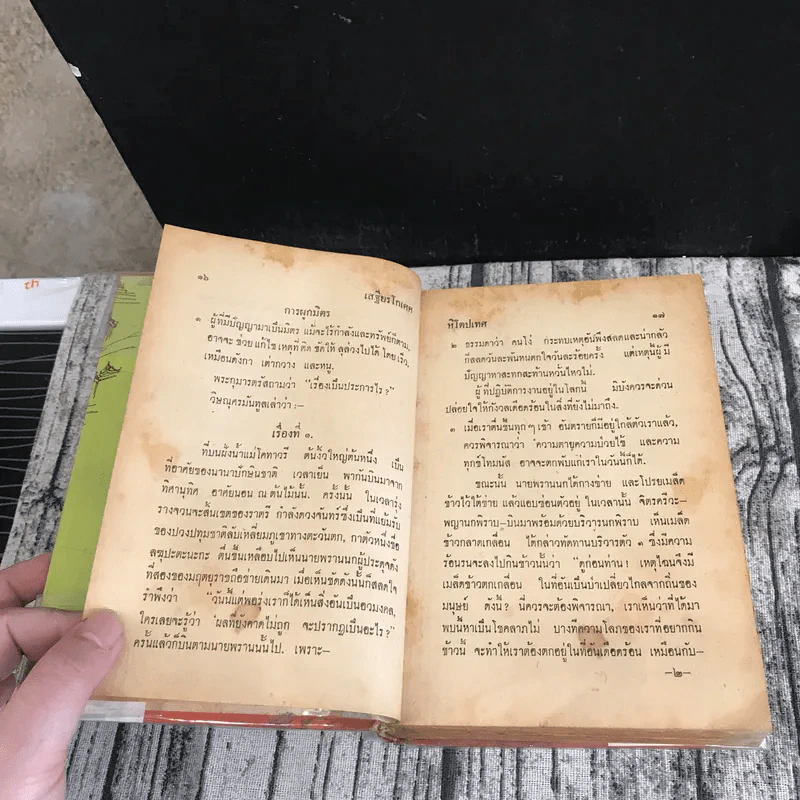 th
๑๖
เสฐียรโกเศศ
การผูกมิตร
๑ ผู้ที่มีปัญญามาเป็นมิตร แม้จะไร้กำลังและทรัพย์ก็ตาม,
อาจจะ ช่วย แก้ไข เหตุที่ ติด ขัดให้ ลุล่วงไปได้ โดย เร็ว,
เหมือนดังกา เต่ากวาง และหนู.
พระกุมารตรัสถามว่า "เรื่องเป็นประการไร?"
วิษณุศรมันทูลเล่าว่า :—
เรื่องที่ ๑.
ที่บนฝั่งน้ำแม่โคทาวรี ต้นงิ้วใหญ่ต้นหนึ่ง เป็น
ที่อาศัยของนานาปักษินชาติ เวลาเย็น พากันบินมาจาก
ทิศานุทิศ อาศัยนอน ณ ต้นไม้นั้น. ครั้งนั้น ในเวลารุ่ง
รางจวนจะสิ้นเขตของราตรี กำลังดวงจันทร์ซึ่งเป็นที่แย้มรับ
ของปวงปทุมชาติลับเหลี่ยมภูเขาทางตะวันตก, กาตัวหนึ่งชื่อ
ลฆุปะตะนะกะ ตื่นขึ้นเหลือบไปเห็นนายพรานนกผู้ประดุจดัง
ที่สองของมฤตยูราชถือข่ายเดินมา เมื่อเห็นชัดดังนั้นก็สลดใจ
รำพึงว่า "วันนี้แต่พอรุ่งเราก็ได้เห็นสิ่งอันเป็นอวมงคล,
ใครเลยจะรู้ว่า 'ผลที่ยังคาดไม่ถูก จะปรากฏเป็นอะไร?'
ครั้นแล้วก็บินตามนายพรานนั้นไป. เพราะ—
หิโตปเทศ
๑๗
๒ ธรรมดาว่า คนโง่ กระทบเหตุอันพึงสลดและน่ากลัว
ก็สลดวันละพันหนตกใจวันละร้อยครั้ง แต่เหตุนี้ผู้ มี
ปัญญาหาสะทกสะท้านหวั่นไหวไม่.
ผู้ ที่ปฏิบัติการงานอยู่ในโลกนี้ มิบังควรจะด่วน
ปล่อยใจให้กังวลเดือดร้อนในสิ่งที่ยังไม่มาถึง.
๑ เมื่อเราตื่นขึ้นทุก ๆ เช้า อันตรายก็มีอยู่ใกล้ตัวเราแล้ว,
ควรพิจารณาว่า 'ความตายความป่วยไข้ และความ
ทุกข์โทมนัส อาจจะตกพับแก่เราในวันนี้ก็ได้.
ขณะนั้น นายพรานนกได้กางข่าย และโปรยเมล็ด
ข้าวไว้ใต้ข่าย แล้วแอบซ่อนตัวอยู่ ในเวลานั้น จิตรครีวะ—
พญานกพิราบ—บินมาพร้อมด้วยบริวารนกพิราบ เห็นเมล็ด
ข้าวกลาดเกลื่อน ได้กล่าวทัดทานบริวารตัว ๑ ซึ่งมีความ
ร้อนรนจะลงไปกินข้าวนั้นว่า "ดูก่อนท่าน! เหตุไฉนจึงมี
เมล็ดข้าวตกเกลื่อน ในที่อันเป็นป่าเปลี่ยวไกลจากถิ่นของ
มนุษย์ ดังนี้? นี่ควรจะต้องพิจารณา, เราเห็นว่าที่ได้มา
พบนี้หาเป็นโชคลาภไม่ บางทีความโลภของเราที่อยากกิน
ข้าวนี้ จะทำให้เราต้องตกอยู่ในที่อันเดือดร้อน เหมือนกับ—
—๒—